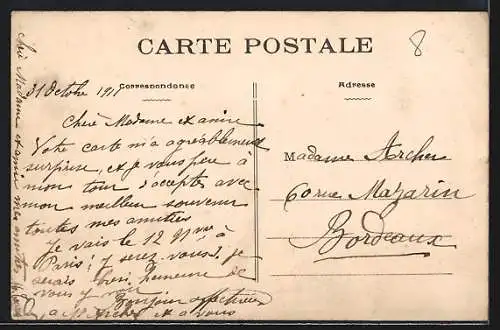 CARTE POSTALE
8
Correspondance
Adresse
31 Octobre 1911
Chère Madame et amie
Votre carte m'a agréablement
surprise, et je vous prie à
mon tour d'accepter avec
mon meilleur souvenir
toutes mes amitiés
Je vais le 12 9bre à
Paris! y serez-vous? je
serais bien heureuse de
vous y voir
Bonjour affectueux
à Mr Archer et à vous
Madame Archer
60 rue Mazarin
Bordeaux
Chère Madame et amie mes amitiés